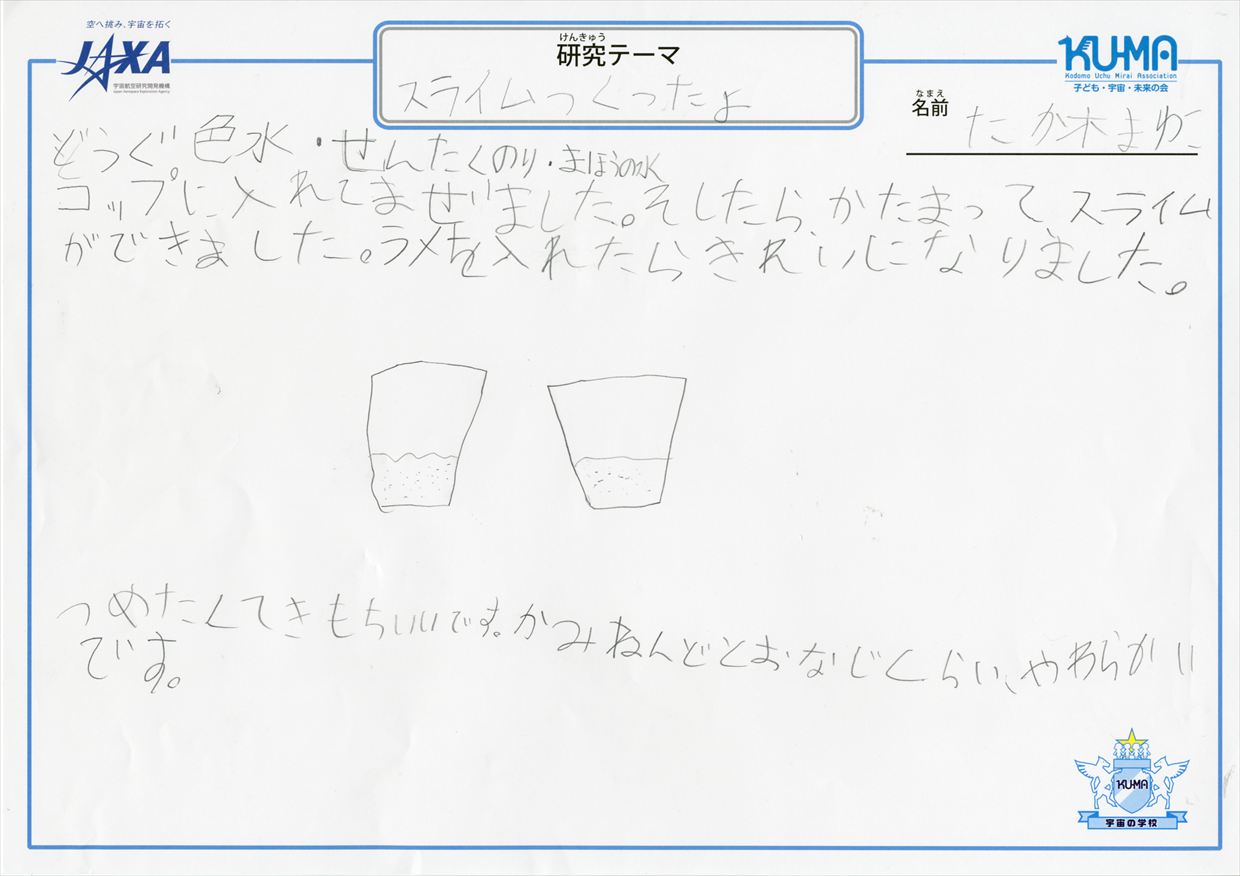 空へ挑み、宇宙を拓く
JAXA
宇宙航空研究開発機構
Japan Aerospace Exploration Agency
けんきゅう
研究テーマ
スライムつくったよ
KU-MA
Kodomo Uchu Mirai Association
子ども・宇宙・未来の会
なまえ
名前 たか木まゆこ
どうぐ。色水・せんたくのり・まほうの水
コップに入れてまぜました。そしたらかたまってスライム
ができました。ラメを入れたらきれいになりました。
つめたくてきもちいいです。かみねんどとおなじくらい、やわらかい
です。
KU-MA
宇宙の学校